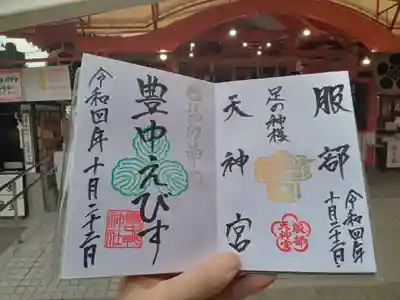 服部
足の神様
天神宮
令和四年
十月二十二日
豊中えびす
令和四年十月二十二日